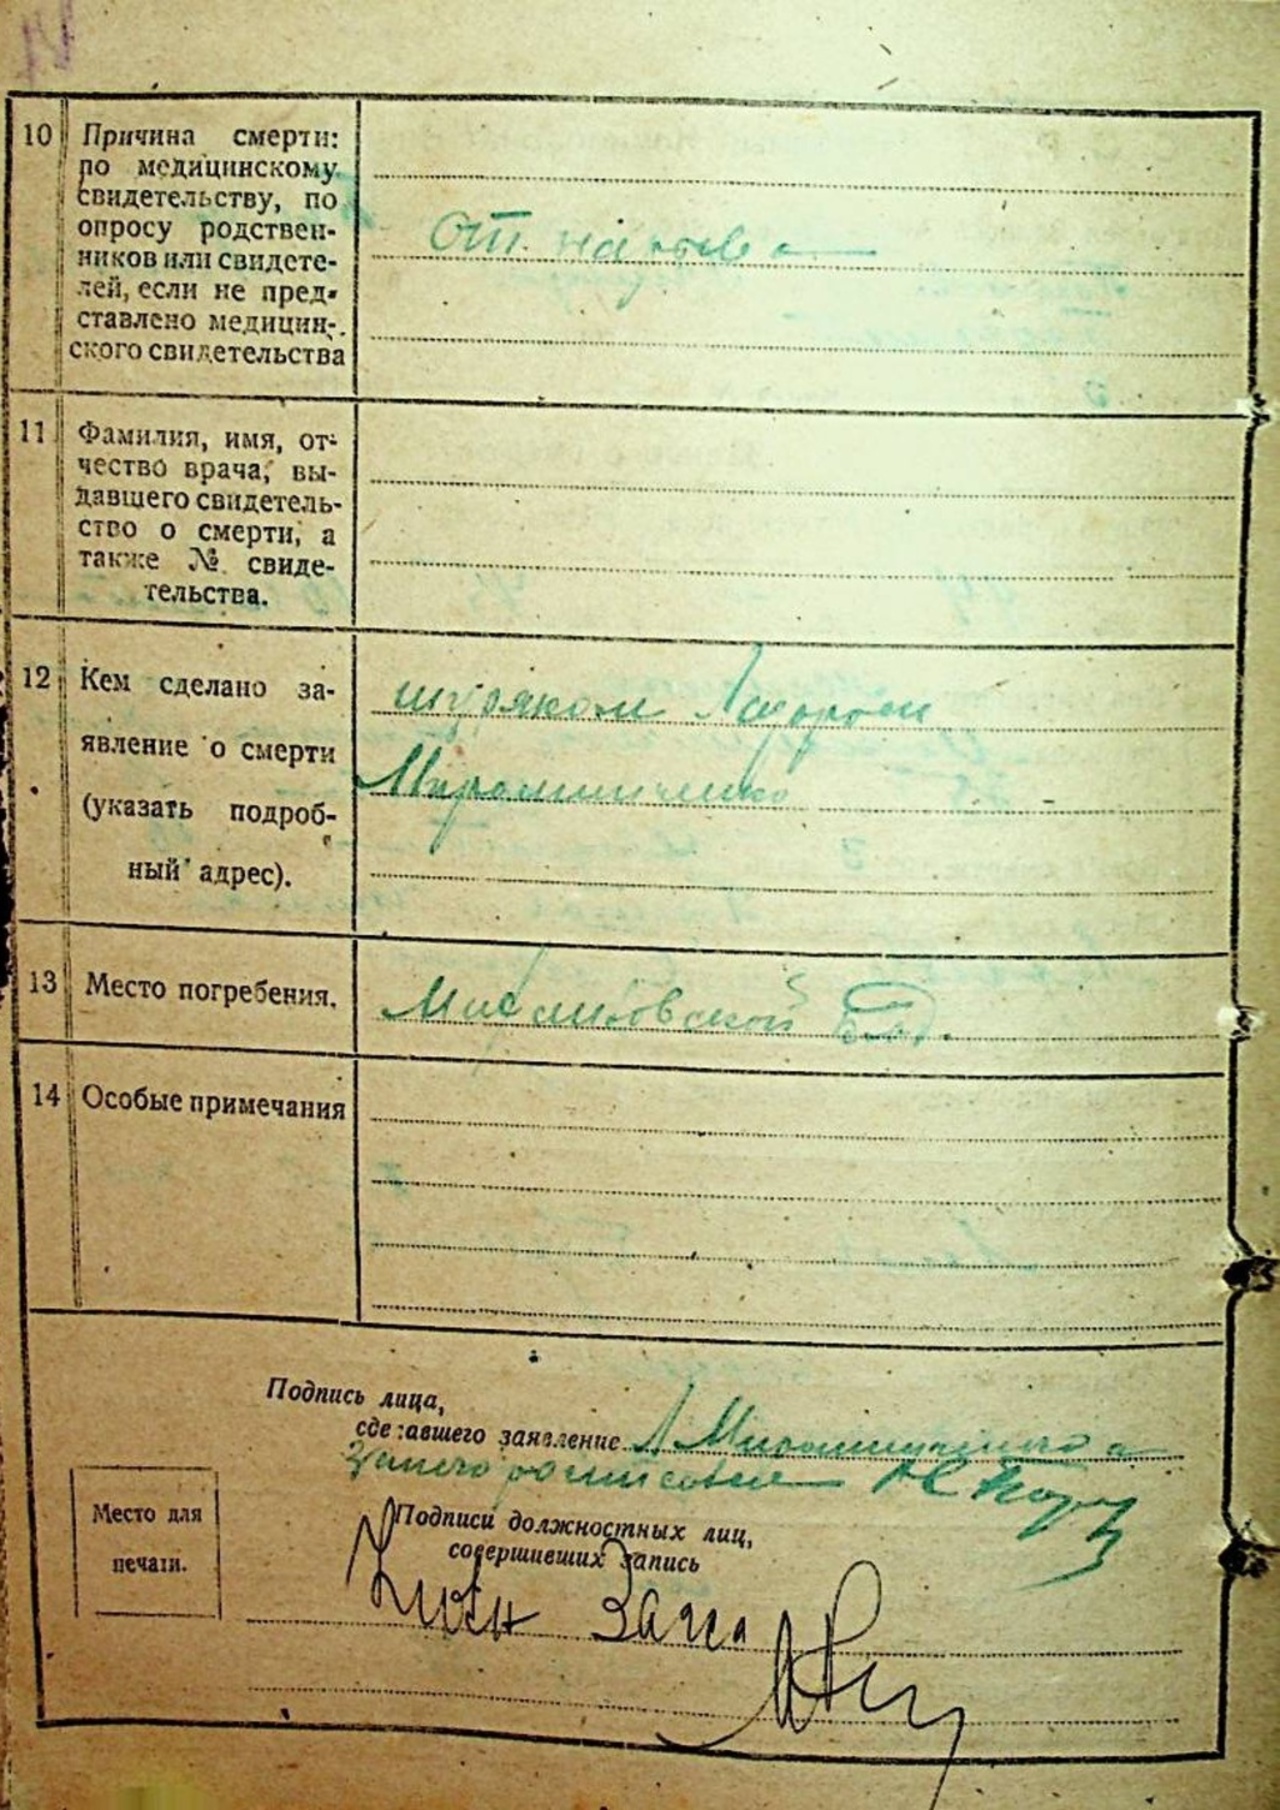 10 Причина смерти:
по медицинскому
свидетельству, по
опросу родствен-
ников или свидете-
лей, если не пред-
ставлено медицин-
ского свидетельства
От
11 Фамилия, имя, от-
чество врача, вы-
давшего свидетель-
ство о смерти, а
также № свиде-
тельства.
12 Кем сделано за-
явление о смерти
(указать подроб-
ный адрес).
шуряком
Мирошниченко
13 Место погребения.
14 Особые примечания
Подпись лица,
сделавшего заявление Мирошниченко а
Подписи должностных лиц,
совершивших запись
Место для
печати.
Загса